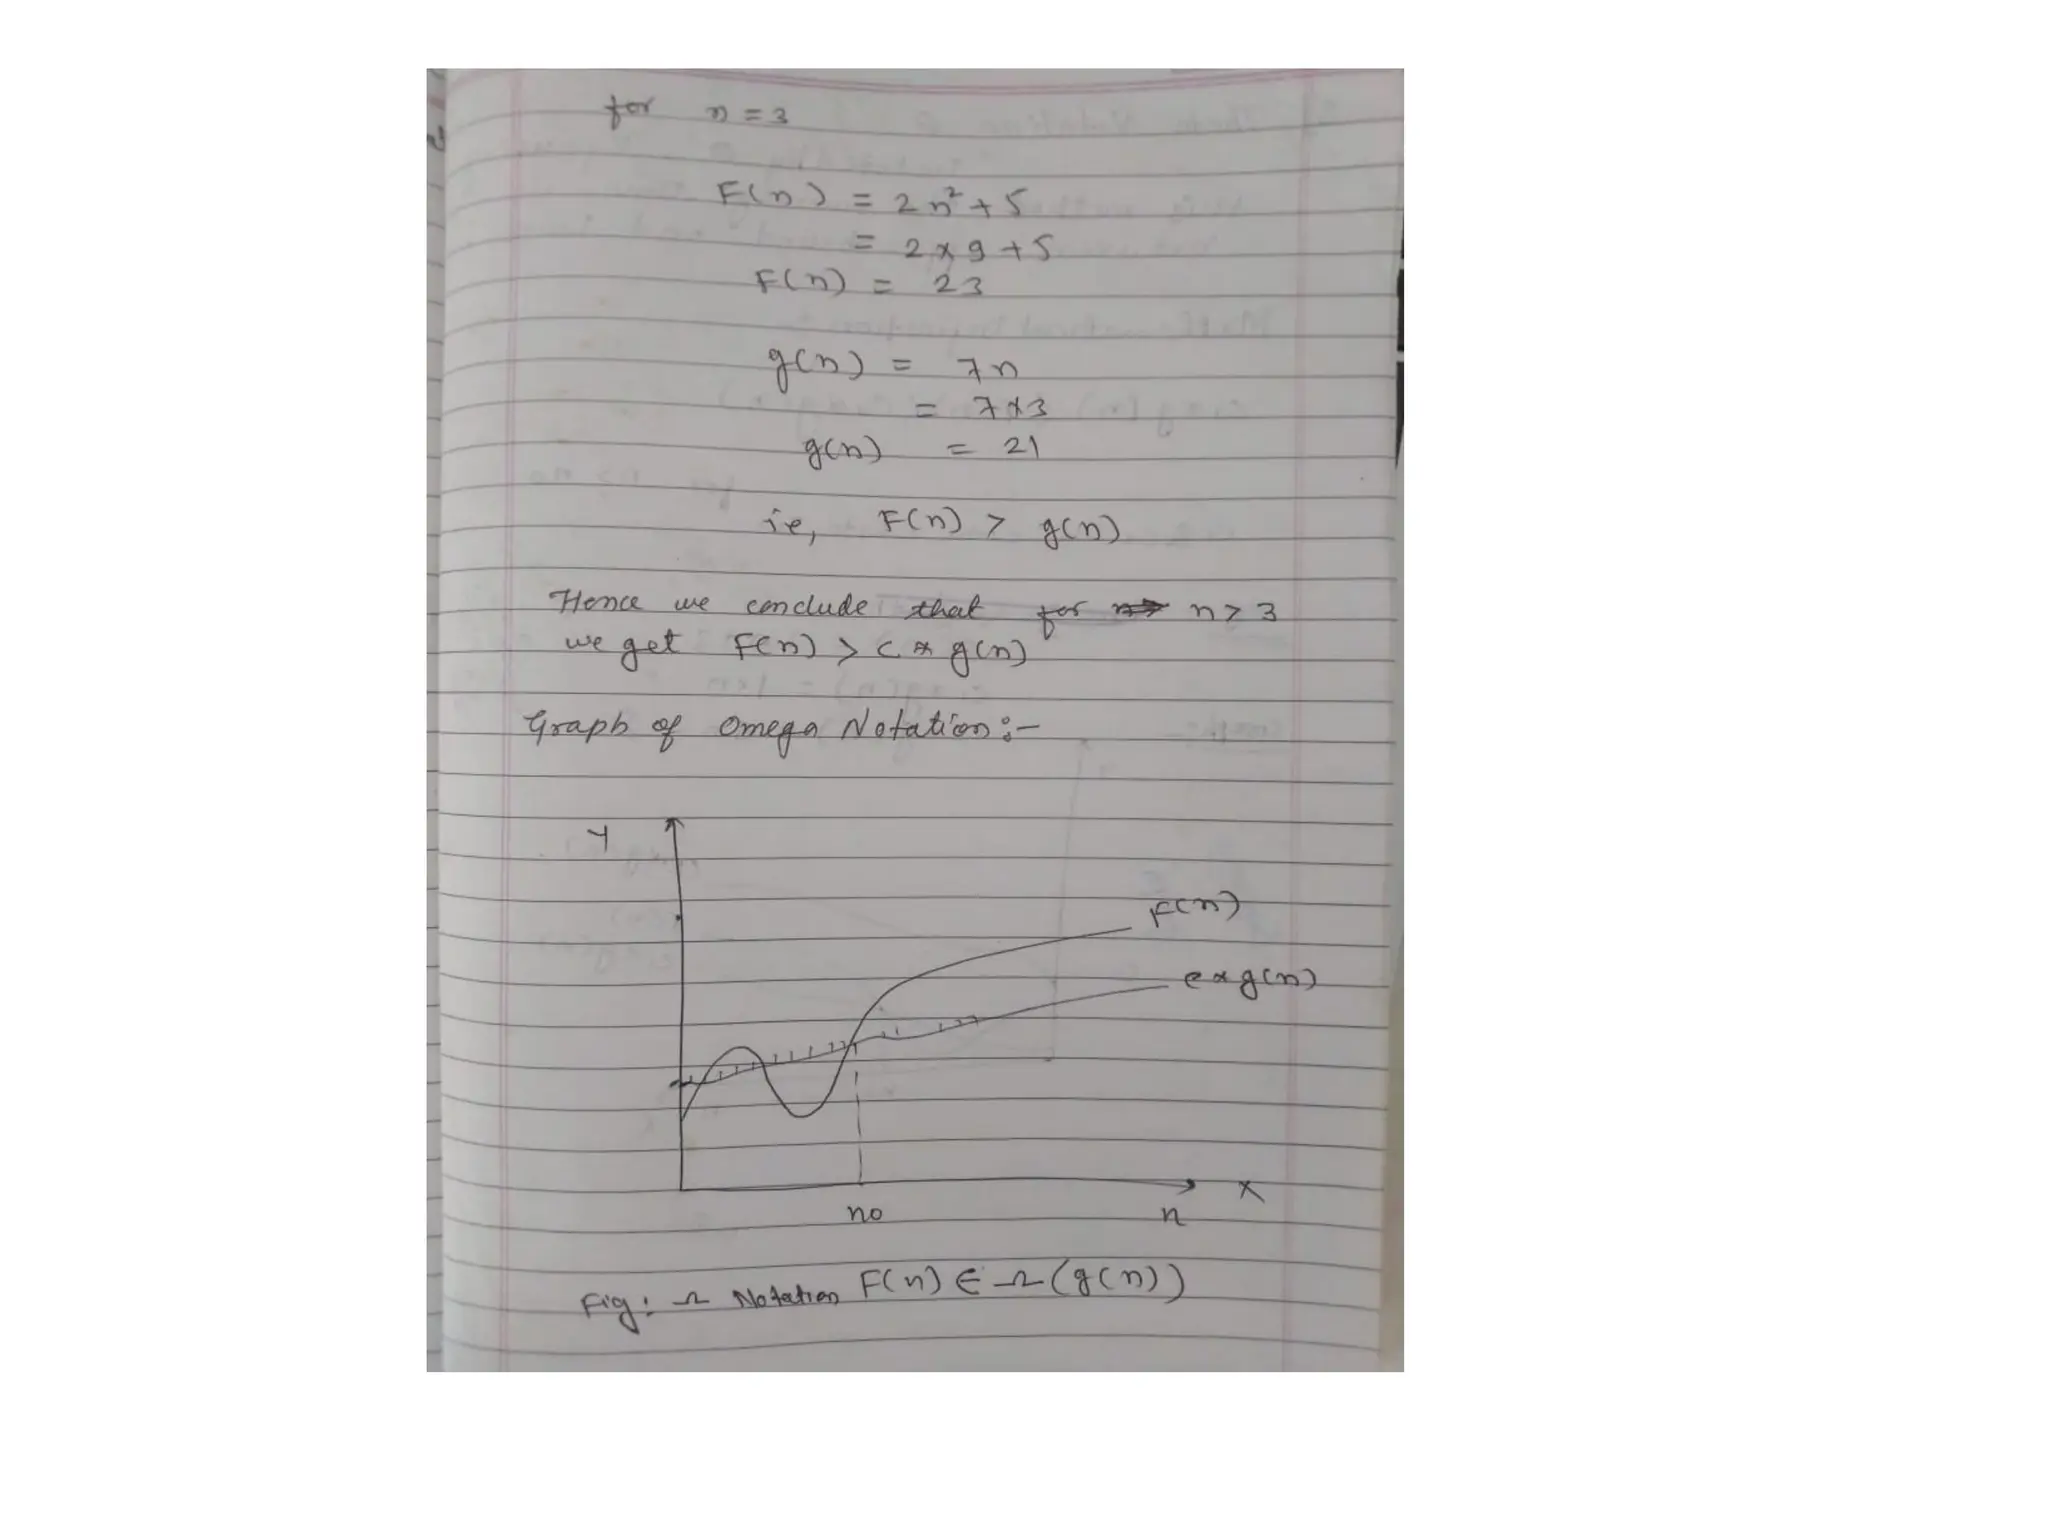 for n = 3
F(n) = 2n² + 5
= 2 * 9 + 5
F(n) = 23
g(n) = 7n
= 7*3
g(n) = 21
ie, F(n) > g(n)
Hence we conclude that for n > 3
we get F(n) > c * g(n)
Graph of Omega Notation :-
Y
F(n)
c * g(n)
X
no n
Fig: Ω Notation F(n) ∈ Ω (g(n))